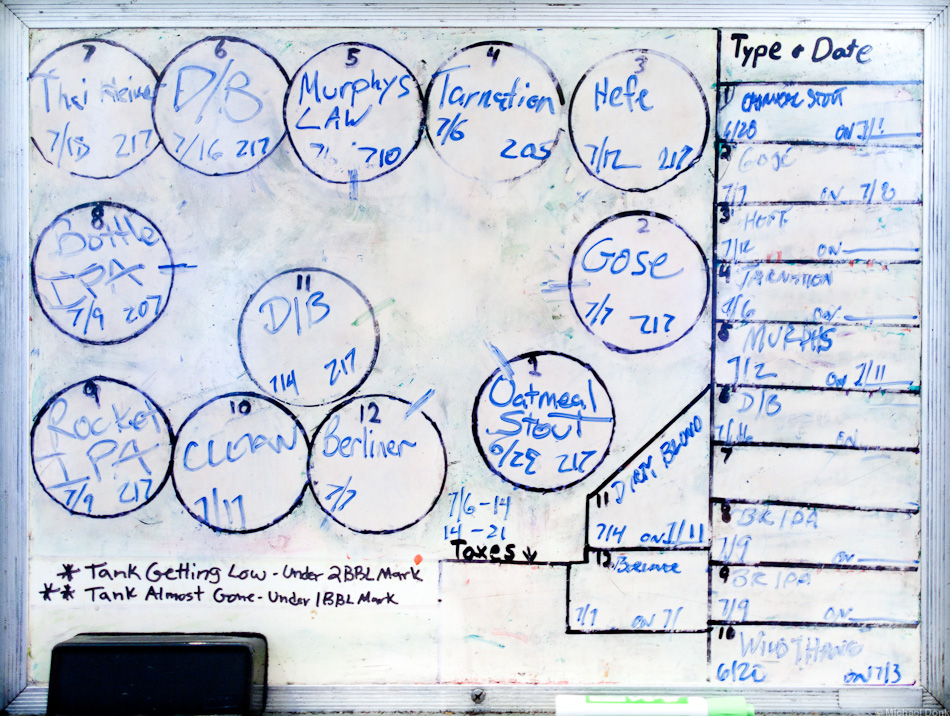 7
7/18 217
6
D/B
7/16 217
5
Murphys
LAW
710
4
Tarnation
7/6
205
3
Hefe
7/12 217
8
Bottle
IPA
7/9 207
11
D/B
7/4 217
2
Gose
7/7 217
9
Rocket
IPA
7/9 217
10
CLEAN
7/17
12
Berliner
7/7
1
Oatmeal
Stout
217
7/6-14
14-21
Taxes ↓
* Tank Getting Low - Under 2BBL Mark
** Tank Almost Gone - Under 1BBL Mark
11 DIRTY BLOND
7/4 ON 7/11
12
7/7 ON 7/
Type & Date
1 OATMEAL STOUT
6/20 ON
2 GOSE
7/7 ON
3 HEFE
7/12 ON
4 TARNATION
ON
5 MURPHS
7/2 ON 7/11
6 D/B
ON
7
8 BR IPA
7/9 ON
9 BR IPA
7/9 ON
10 WILD THANG
6/20 ON 7/3